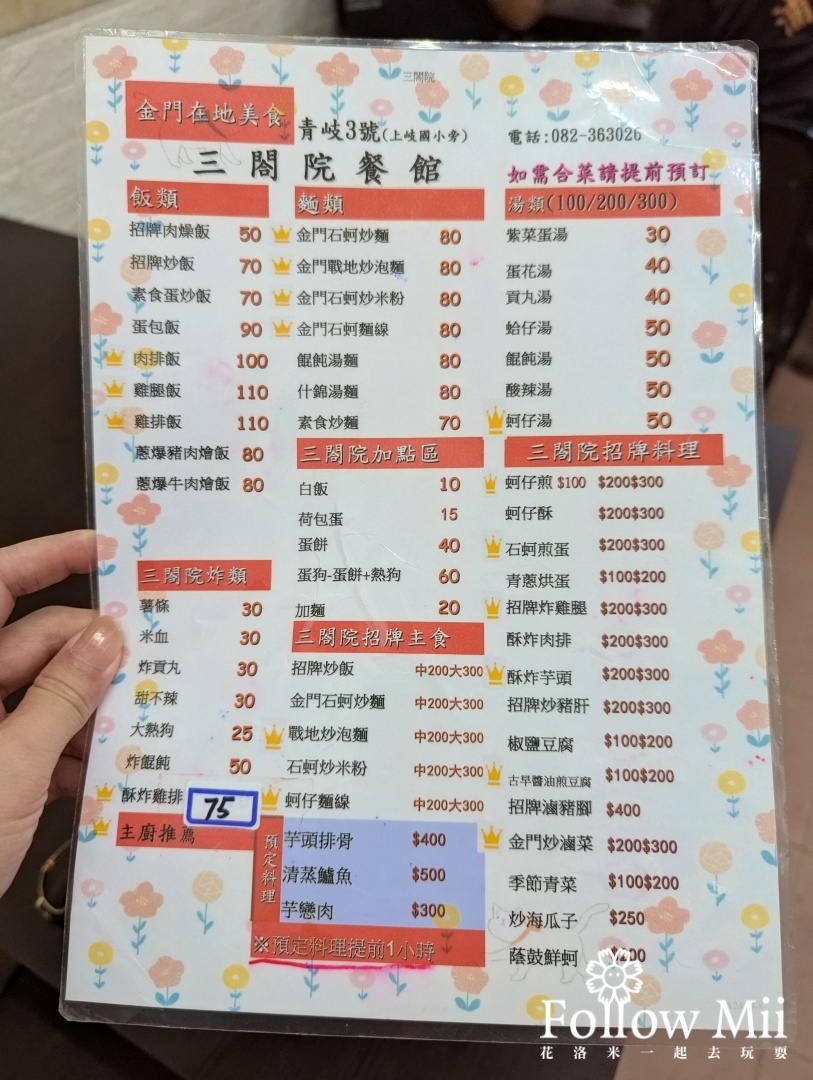 三閤院
金門在地美食
青岐3號(上岐國小旁)
電話:082-363026
三閤院餐館
如需合菜請提前預訂
飯類
招牌肉燥飯 50
招牌炒飯 70
素食蛋炒飯 70
蛋包飯 90
肉排飯 100
雞腿飯 110
雞排飯 110
蔥爆豬肉燴飯 80
蔥爆牛肉燴飯 80
三閤院炸類
薯條 30
米血 30
炸貢丸 30
甜不辣 30
大熱狗 25
炸餛飩 50
酥炸雞排 75
主廚推薦
麵類
金門石蚵炒麵 80
金門戰地炒泡麵 80
金門石蚵炒米粉 80
金門石蚵麵線 80
餛飩湯麵 80
什錦湯麵 80
素食炒麵 70
三閤院加點區
白飯 10
荷包蛋 15
蛋餅 40
蛋狗-蛋餅+熱狗 60
加麵 20
三閤院招牌主食
招牌炒飯 中200大300
金門石蚵炒麵 中200大300
戰地炒泡麵 中200大300
石蚵炒米粉 中200大300
蚵仔麵線 中200大300
預定料理
芋頭排骨 $400
清蒸鱸魚 $500
芋戀肉 $300
※預定料理提前1小時
湯類(100/200/300)
紫菜蛋湯 30
蛋花湯 40
貢丸湯 40
蛤仔湯 50
餛飩湯 50
酸辣湯 50
蚵仔湯 50
三閤院招牌料理
蚵仔煎 $100 $200$300
蚵仔酥 $200$300
石蚵煎蛋 $200$300
青蔥烘蛋 $100$200
招牌炸雞腿 $200$300
酥炸肉排 $200$300
酥炸芋頭 $200$300
招牌炒豬肝 $200$300
椒鹽豆腐 $100$200
古早醬油煎豆腐 $100$200
招牌滷豬腳 $400
金門炒滷菜 $200$300
季節青菜 $100$200
炒海瓜子 $250
蔭鼓鮮蚵
Follow Mii
花洛米一起去玩耍